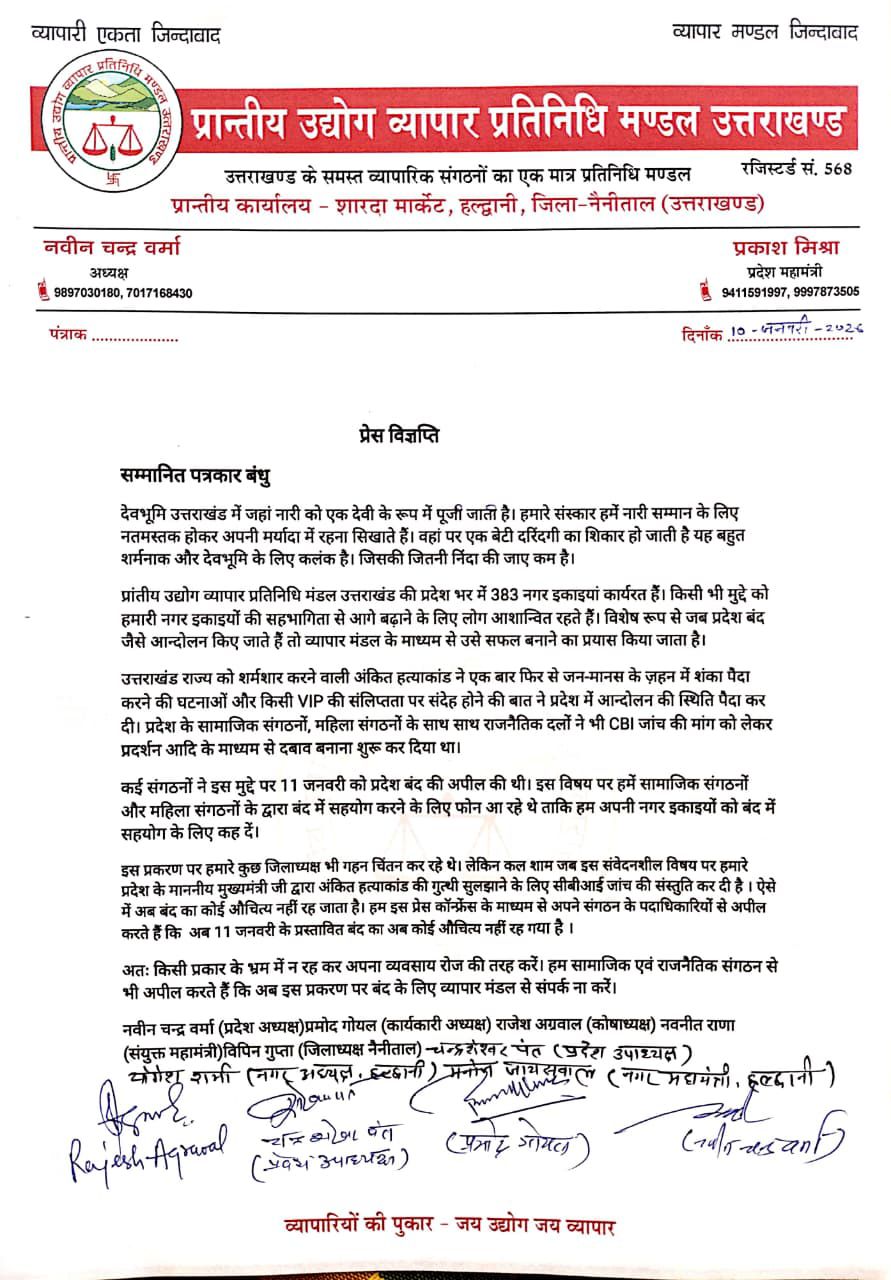 व्यापारी एकता जिन्दाबाद
व्यापार मण्डल जिन्दाबाद
प्रान्तीय उद्योग व्यापार प्रतिनिधि मण्डल उत्तराखण्ड
प्रान्तीय उद्योग व्यापार प्रतिनिधि मण्डल उत्तराखण्ड
उत्तराखण्ड के समस्त व्यापारिक संगठनों का एक मात्र प्रतिनिधि मण्डल
रजिस्टर्ड सं. 568
प्रान्तीय कार्यालय - शारदा मार्केट, हल्द्वानी, जिला-नैनीताल (उत्तराखण्ड)
नवीन चन्द्र वर्मा
अध्यक्ष
9897030180, 7017168430
प्रकाश मिश्रा
प्रदेश महामंत्री
9411591997, 9997873505
पंत्राक ....................
दिनाँक 10-जनवरी-2026
प्रेस विज्ञप्ति
सम्मानित पत्रकार बंधु
देवभूमि उत्तराखंड में जहां नारी को एक देवी के रूप में पूजी जाती है। हमारे संस्कार हमें नारी सम्मान के लिए
नतमस्तक होकर अपनी मर्यादा में रहना सिखाते हैं। वहां पर एक बेटी दरिंदगी का शिकार हो जाती है यह बहुत
शर्मनाक और देवभूमि के लिए कलंक है। जिसकी जितनी निंदा की जाए कम है।
प्रांतीय उद्योग व्यापार प्रतिनिधि मंडल उत्तराखंड की प्रदेश भर में 383 नगर इकाइयां कार्यरत हैं। किसी भी मुद्दे को
हमारी नगर इकाइयों की सहभागिता से आगे बढ़ाने के लिए लोग आशान्वित रहते हैं। विशेष रूप से जब प्रदेश बंद
जैसे आन्दोलन किए जाते हैं तो व्यापार मंडल के माध्यम से उसे सफल बनाने का प्रयास किया जाता है।
उत्तराखंड राज्य को शर्मशार करने वाली अंकित हत्याकांड ने एक बार फिर से जन-मानस के ज़हन में शंका पैदा
करने की घटनाओं और किसी VIP की संलिप्तता पर संदेह होने की बात ने प्रदेश में आन्दोलन की स्थिति पैदा कर
दी। प्रदेश के सामाजिक संगठनों, महिला संगठनों के साथ साथ राजनैतिक दलों ने भी CBI जांच की मांग को लेकर
प्रदर्शन आदि के माध्यम से दबाव बनाना शुरू कर दिया था।
कई संगठनों ने इस मुद्दे पर 11 जनवरी को प्रदेश बंद की अपील की थी। इस विषय पर हमें सामाजिक संगठनों
और महिला संगठनों के द्वारा बंद में सहयोग करने के लिए फोन आ रहे थे ताकि हम अपनी नगर इकाइयों को बंद में
सहयोग के लिए कह दें।
इस प्रकरण पर हमारे कुछ जिलाध्यक्ष भी गहन चिंतन कर रहे थे। लेकिन कल शाम जब इस संवेदनशील विषय पर हमारे
प्रदेश के माननीय मुख्यमंत्री जी द्वारा अंकित हत्याकांड की गुत्थी सुलझाने के लिए सीबीआई जांच की संस्तुति कर दी है । ऐसे
में अब बंद का कोई औचित्य नहीं रह जाता है। हम इस प्रेस कॉन्फ्रेंस के माध्यम से अपने संगठन के पदाधिकारियों से अपील
करते हैं कि अब 11 जनवरी के प्रस्तावित बंद का अब कोई औचित्य नहीं रह गया है ।
अतः किसी प्रकार के भ्रम में न रह कर अपना व्यवसाय रोज की तरह करें। हम सामाजिक एवं राजनैतिक संगठन से
भी अपील करते हैं कि अब इस प्रकरण पर बंद के लिए व्यापार मंडल से संपर्क ना करें।
नवीन चन्द्र वर्मा (प्रदेश अध्यक्ष)प्रमोद गोयल (कार्यकारी अध्यक्ष) राजेश अग्रवाल (कोषाध्यक्ष) नवनीत राणा
(संयुक्त महामंत्री)विपिन गुप्ता (जिलाध्यक्ष नैनीताल) चन्द्रशेखर पंत (प्रदेश उपाध्यक्ष)
योगेश शर्मा (नगर अध्यक्ष, हल्द्वानी) मनोज जायसवाल (नगर महामंत्री, हल्द्वानी)
Rajesh Agrawal
चन्द्रशेखर पंत
(प्रदेश उपाध्यक्ष)
(प्रमोद गोयल)
(नवीन चन्द्र वर्मा)
व्यापारियों की पुकार - जय उद्योग जय व्यापार